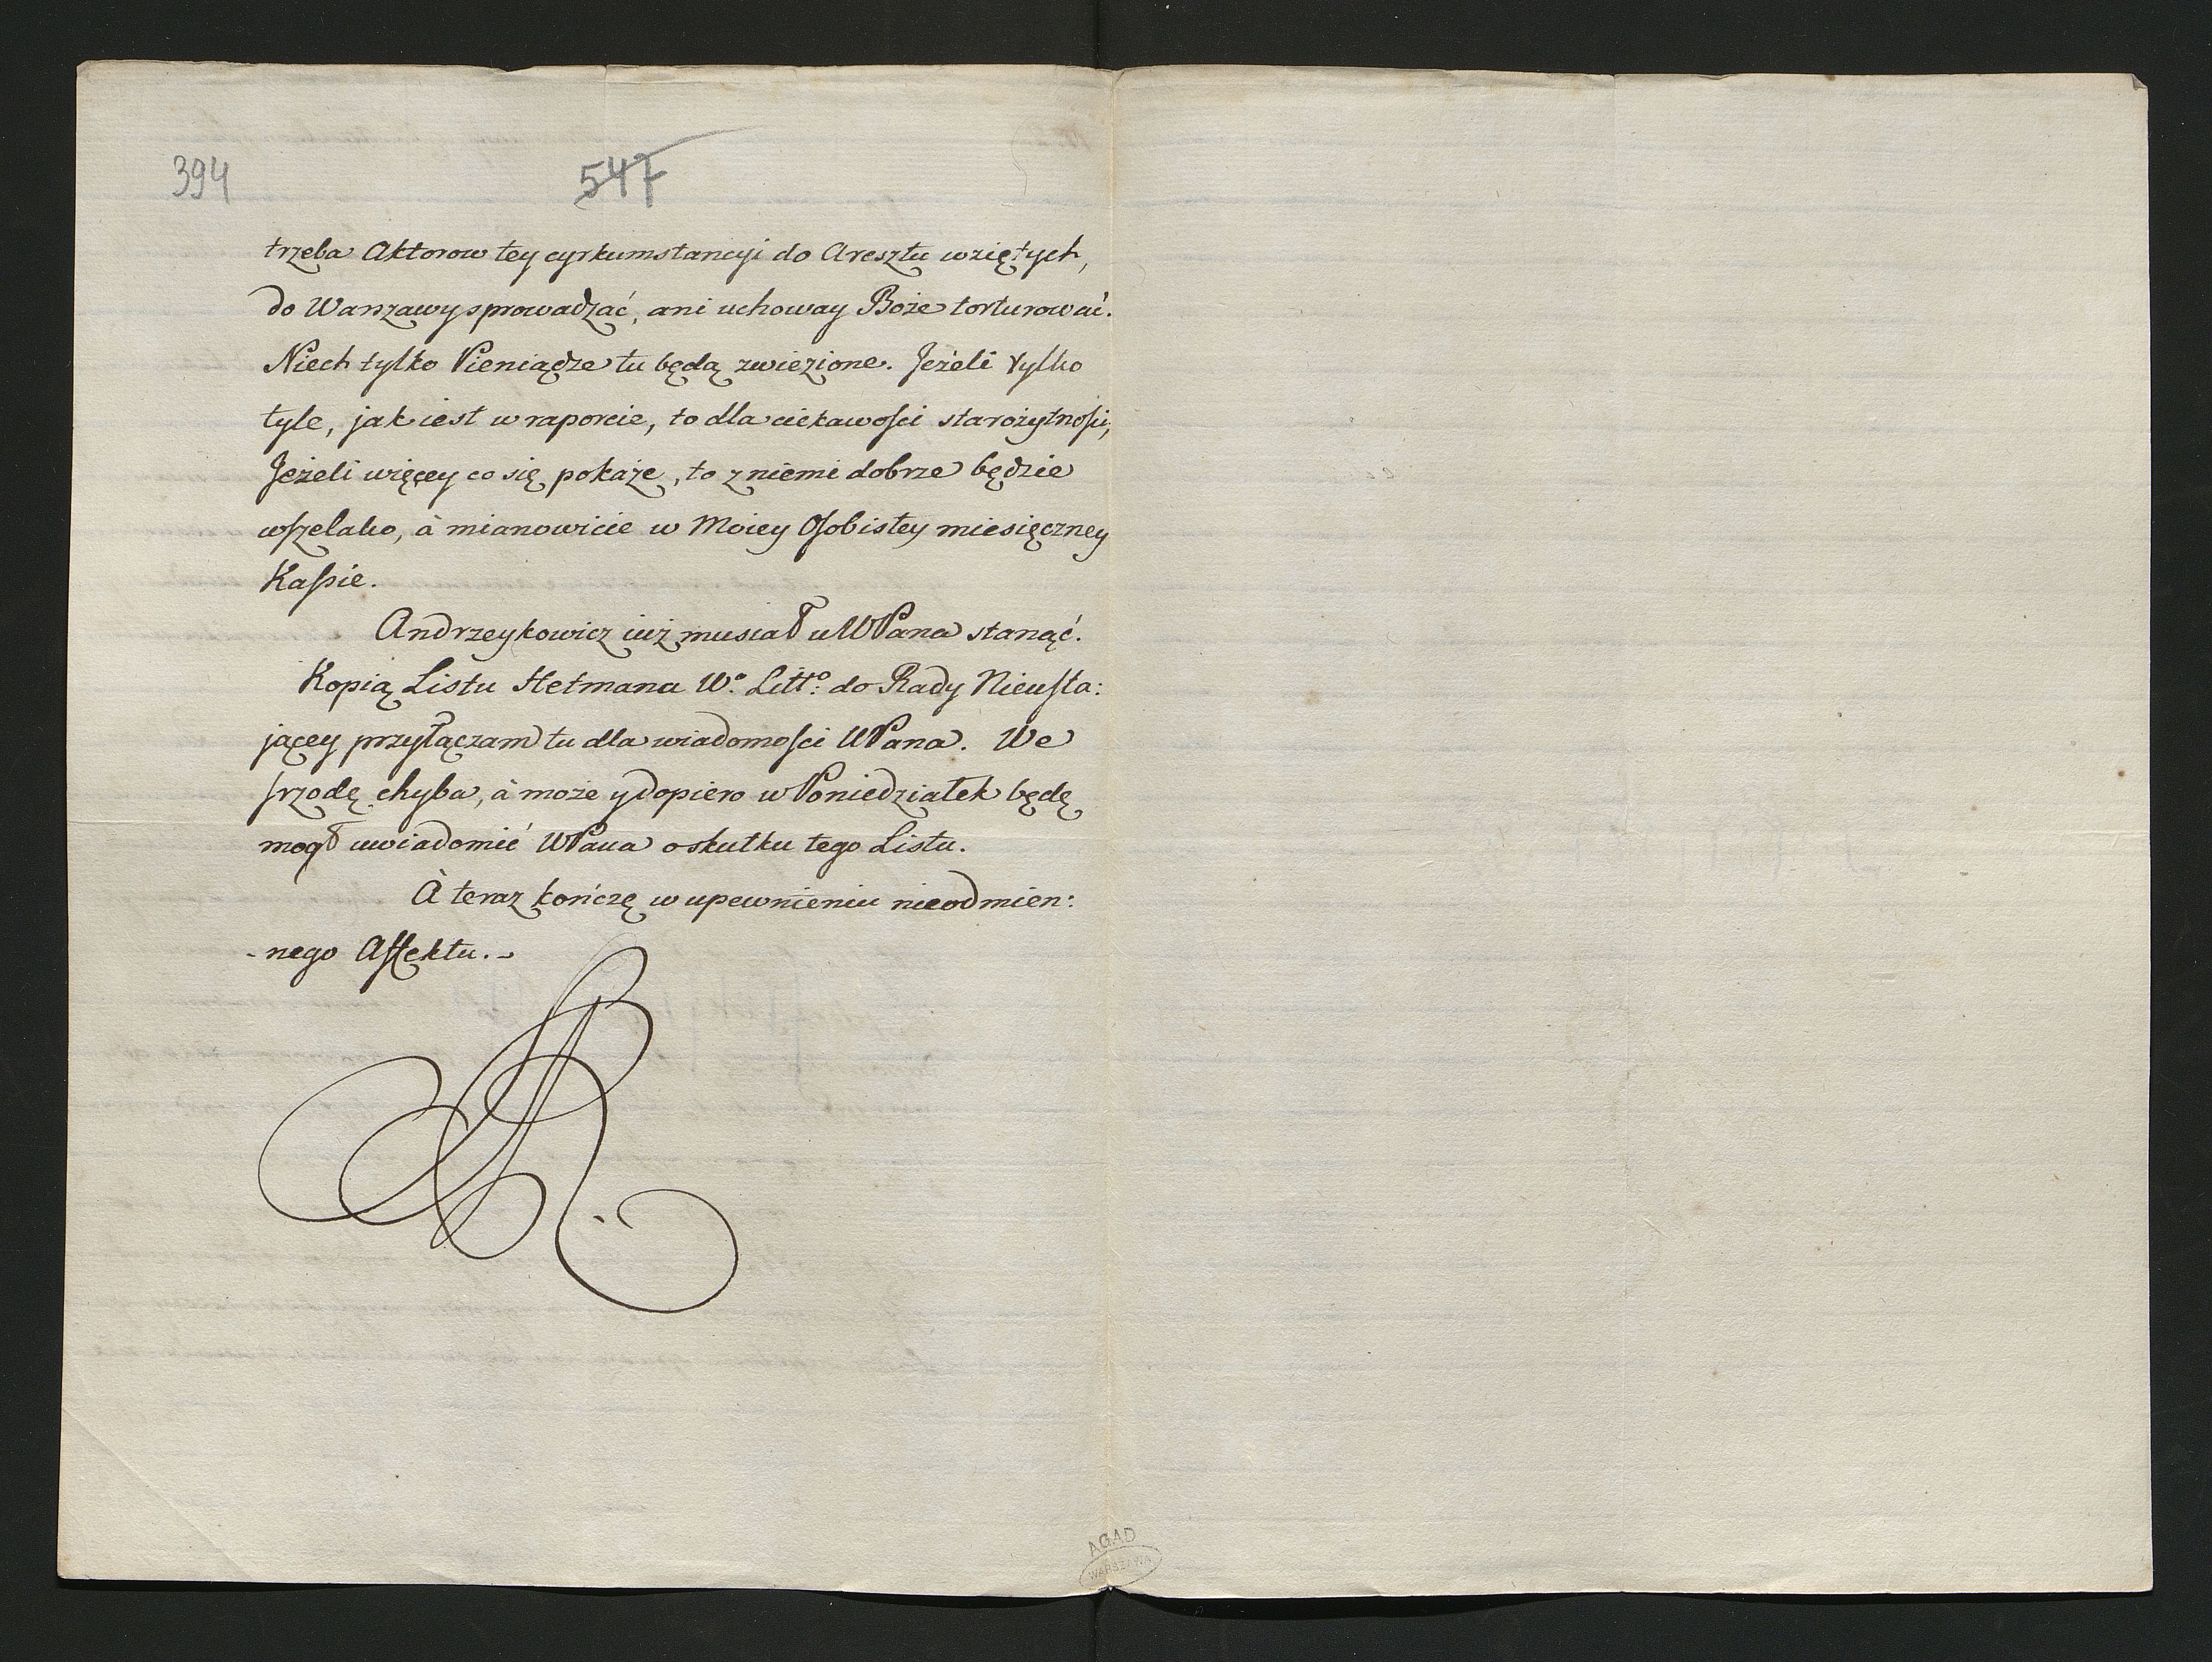 394
547
trzeba Aktorow tey cyrkumstancyi do Aresztu wziętych,
do Warszawy sprowadzać, ani uchoway Boże torturować.
Niech tylko Pieniądze tu będą zwiezione. Jeżeli tylko
tyle, jak iest w raporcie, to dla ciekawości starożytności,
Jeżeli więcey co się pokaże, to z niemi dobrze będzie
wszelako, à mianowicie w Moiey Osobistey miesięczney
Kassie.
Andrzeykowicz iuż musiał u WPana stanąć.
Kopią Listu Hetmana Wo. Litto: do Rady Nieusta:
jącey przyłączam tu dla wiadomości WPana. We
srzodę chyba, à może y dopiero w Poniedziałek będę
mogł uwiadomić WPana o skutku tego Listu.
À teraz kończę w upewnieniu nieodmien:
-nego Affektu.-
SAR.
AGAD
WARSZAWA